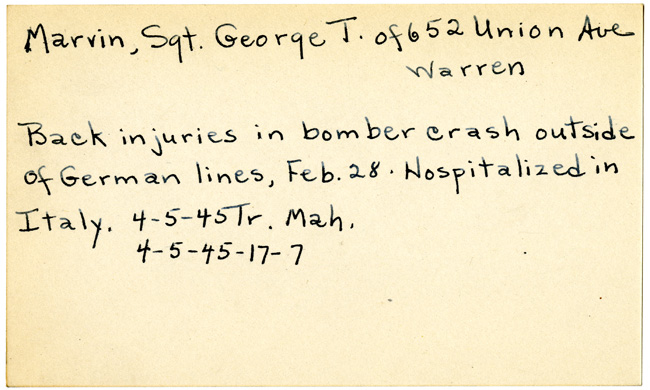 Marvin, Sgt. George T. of 652 Union Ave
Warren
Back injuries in bomber crash outside
of German lines, Feb. 28. Hospitalized in
Italy. 4-5-45 Tr. Mah.
4-5-45-17-7